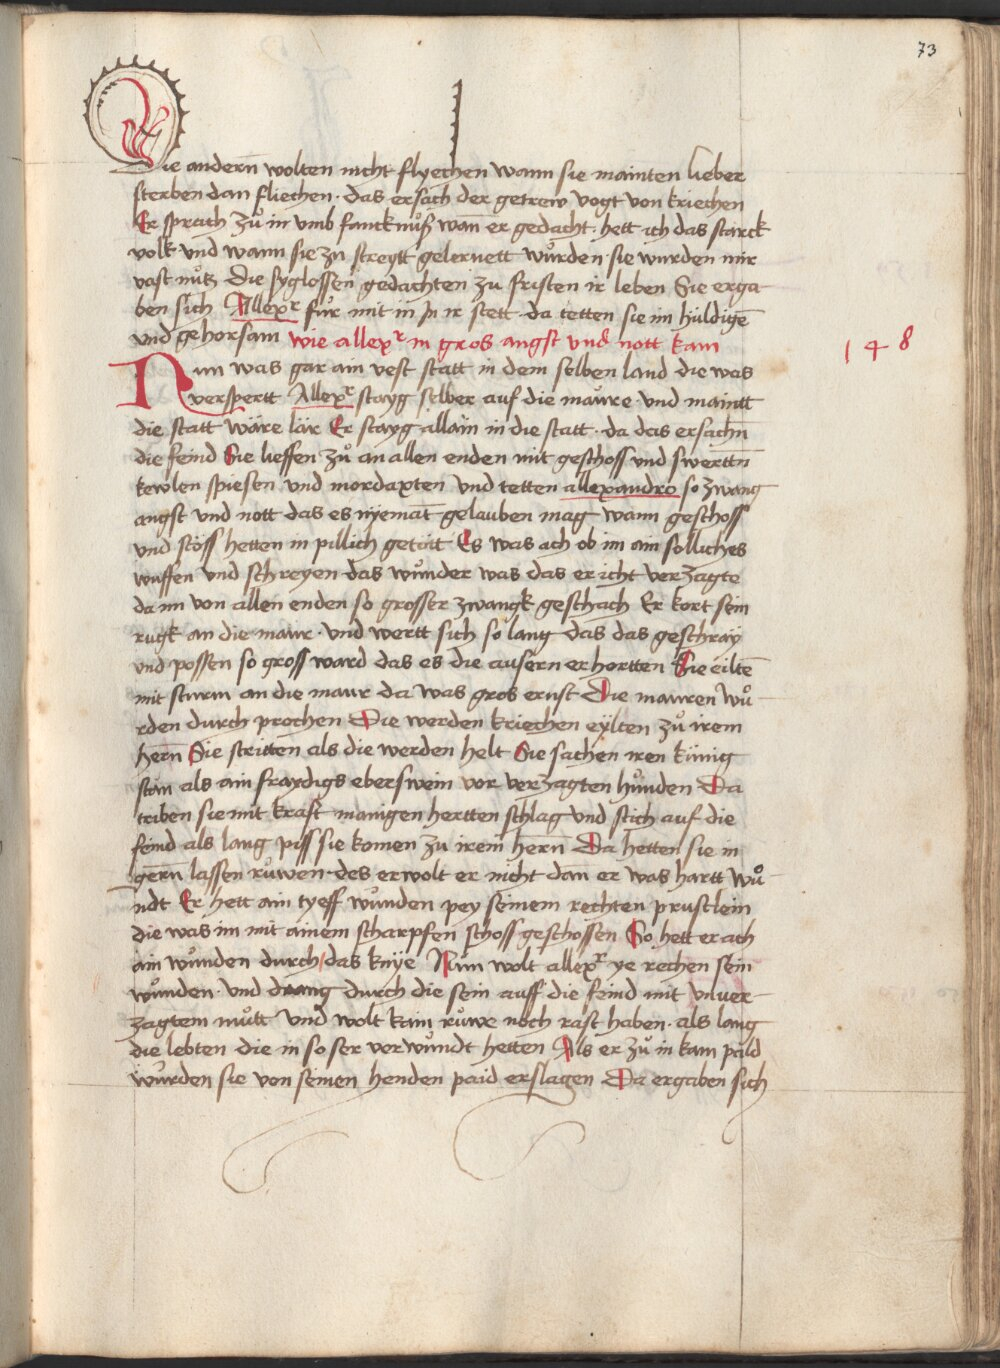 73
Die andern̄ wolten nicht flyechen wann sie mainten lieber
sterben dan fliechen · das ersach der getrew vogt von kriechen
Er sprach zů in vmb fancknůß wan er gedacht · hett ich das starck
volk vnd wann sie zu streytt gelernett wůrden sie wurden mir
vast nůtz Die syglossen gedachten zu fristen ir leben Sie erga-
ben sich Allexr fůr mit in Jn ir stett · da tetten sie im huldigē
vnd gehorsam wie allexr in gros angst vnd nott kam
148
Nun was gar ain vest statt in dem selben land die was
verspertt Allexr stayg selber auf die maůre · vnd maintt
die statt wäre lär Er stayg allain in die statt · da das ersachn̄
die feind Sie lieffen zů an allen enden mit geschoss vnd swerttn̄
kewlen spiesen vnd mordaxten vnd tetten allexandro so zwang
angst vnd nott das es nyemāt gelauben mag wann geschoss
vnd stöss hetten in pillich getött Es was ach ob im ain solliches
wuffen vnd schreyen das wůnder was das er icht verzagte
da im von allen enden so grosser zwangk geschach Er kort sein
rugk an die maur · vnd wertt sich so lang das das geschray
vnd possen so gross ward das es die ausern erhortten Sie eiltē
mit sturm an die maur da was gros ernst Die mauren wů-
rden durch prochen Die werden kriechen eylten zů irem
hern̄ Sie stritten als die werden helt Sie sachen iren künig
stan als ain fraydigs eberswein vor verzagten hůnden Da
triben sie mit kraft manigen hertten schlag vnd stich auf die
feind als lang piss sie komen zu irem hern̄ Da hetten sie in
gern̄ lassen růwen · des er wolt er nicht dan̄ er was hartt wů-
ndt Er hett ain tyeff wůnden pey seinem rechten prustlein
die was im mit ainem scharpfen schoss geschossen So hett er ach
ain wůnden durch das knye Nun wolt allexr ye rechen sein
wůnden · vnd drang durch die sein auff die feind mit vnuer-
zagtem můtt vnd wolt kain růwe noch rast haben · als lang
die lebten die in so ser verwůndt hetten Als er zů in kam pald
wůrden sie von seinen henden paid erslagen Da ergaben sich